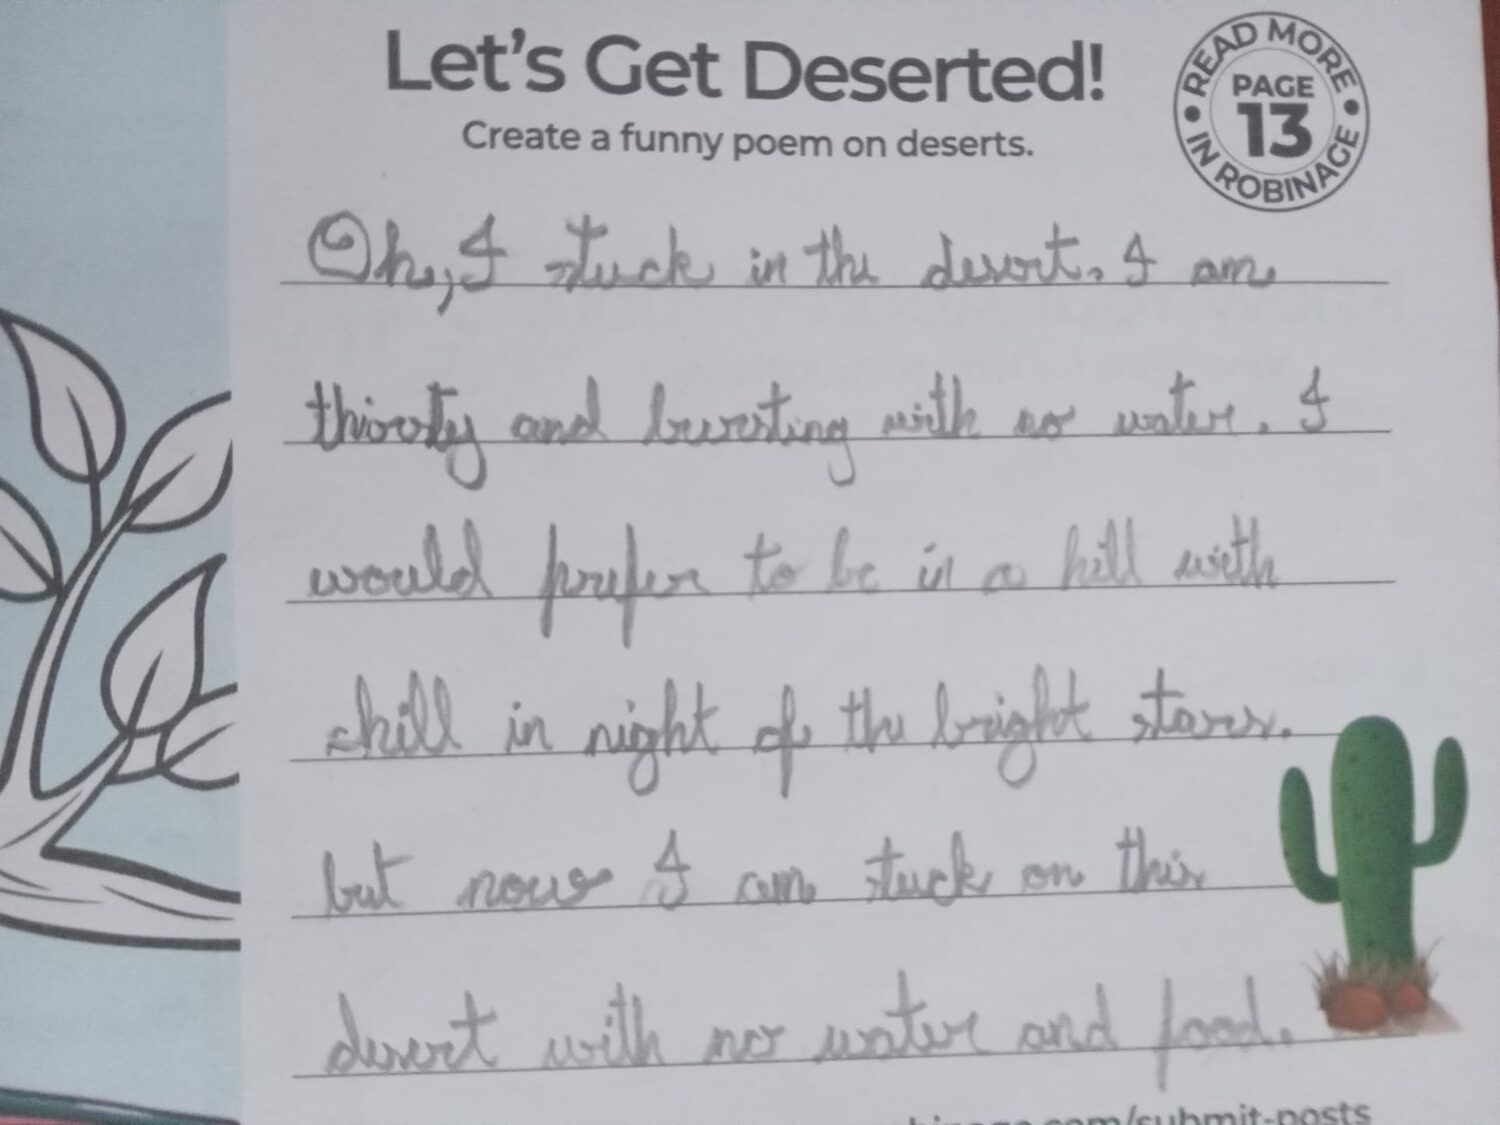 Let's Get Deserted!
Create a funny poem on deserts.
READ MORE
PAGE
13
IN ROBINAGE
Oh, I stuck in the desert. I am
thirsty and bursting with no water. I
would prefer to be in a hill with
chill in night of the bright stars.
but now I am stuck on this
desert with no water and food.
.com/submit-posts